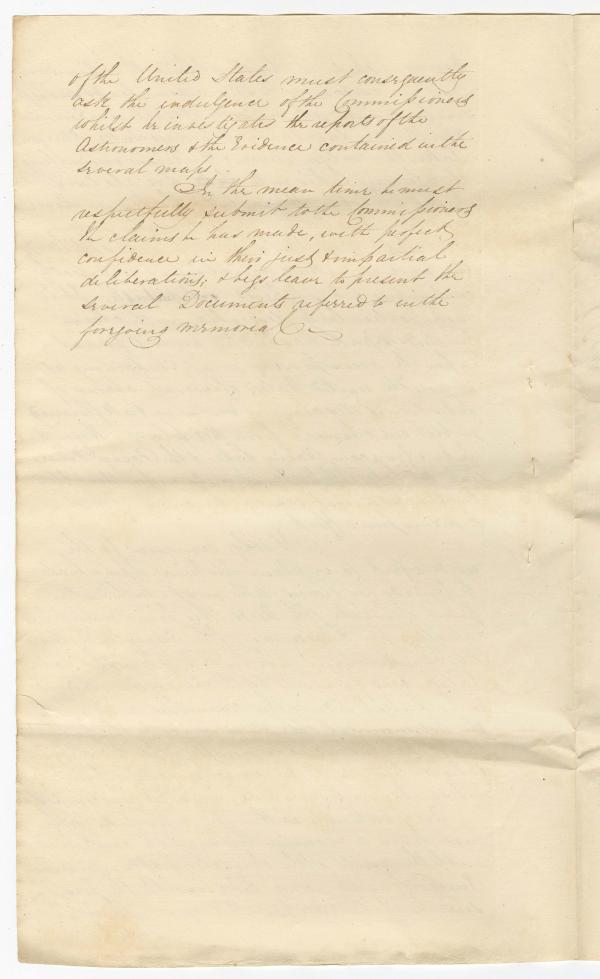 of the United States must consequently
ask the indulgence of the Commissioners
whilst he investigates the reports of the
Astronomers & the Evidence contained in the
several maps.
In the mean time he must
respectfully submit to the Commissioners
the claims he has made, with perfect
confidence in their just & impartial
deliberations; & begs leave to present the
several Documents referred to in the
foregoing memorial